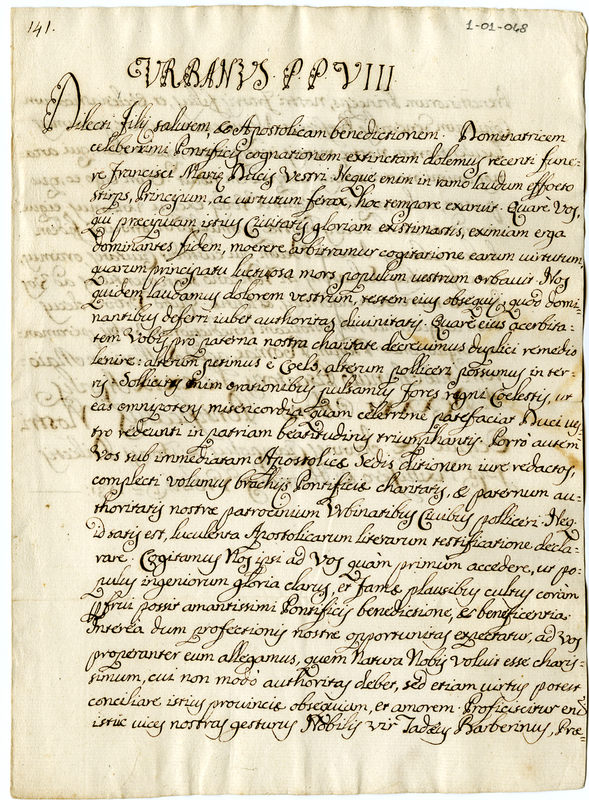 141.
1-01-048
VRBANVS. P P VIII.
Dilecti Filij salutem, & Apostolicam benedictionem. Nominatricem
celeberrimi Pontificis cognationem extinctam dolemus recenti fune-
re Francisci Mariæ Ducis Vestri. Neque enim in ramo laudum effoeto
stirps, Principum, ac virtutum ferax, hoc tempore exaruit. Quarè Vos,
qui præcipuam istius Civitatis gloriam existimastis, eximiam erga
dominantes fidem, moerere arbitramur cogitatione earum virtutum,
quarum principatu luctuosa mors populum vestrum orbavit. Nos
quidem laudamus dolorem vestrum, testem eius obsequij, quod domi-
nantibus deferri iubet authoritas divinitatis. Quare eius acerbita-
tem Vobis pro paterna nostra charitate decrevimus duplici remedio
lenire: alterum petimus è Coelo, alterum polliceri possumus in ter-
ris. Sollicitis enim orationibus pulsamus fores regni Coelestis, ut
eas omnipotens misericordia quàm celerrimè patefaciat Duci ves
tro redeunti in patriam beatitudinis triumphantis. Porrò autem
Vos sub immediatam Apostolicæ Sedis ditionem iure redactos,
complecti volumus brachijs Pontificiæ charitatis, & paternum au-
thoritatis nostræ patrocinium Vrbinatibus Civibus polliceri. Neq.
id satis est, luculenta Apostolicarum literarum testificatione decla-
rare. Cogitamus Nos ipsi ad Vos quàm primùm accedere, ut po-
pulus ingeniorum gloria clarus, et famæ plausibus cultus coràm
pfrui possit amantissimi Pontificis benedictione, & beneficentia.
Interea dum profectionis nostræ opportunitas expectatur, ad Vos
properanter eum allegamus, quem Natura Nobis voluit esse charis-
simum, cui non modò authoritas debet, sed etiam virtus potest
conciliare istius provinciæ obsequium, et amorem. Proficiscitur eni
istuc vices nostras gesturus Nobilis vir Tadæus Barberinus, Præ-